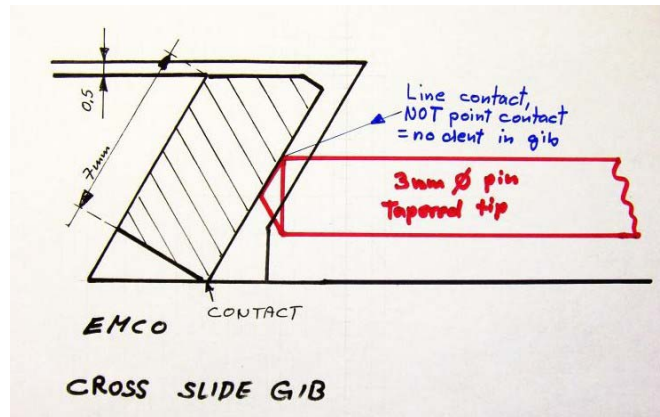 0,5
7mm
Line contact,
NOT point contact
= no dent in gib
3mm Ø pin
Tapered tip
CONTACT
EMCO
CROSS SLIDE GIB